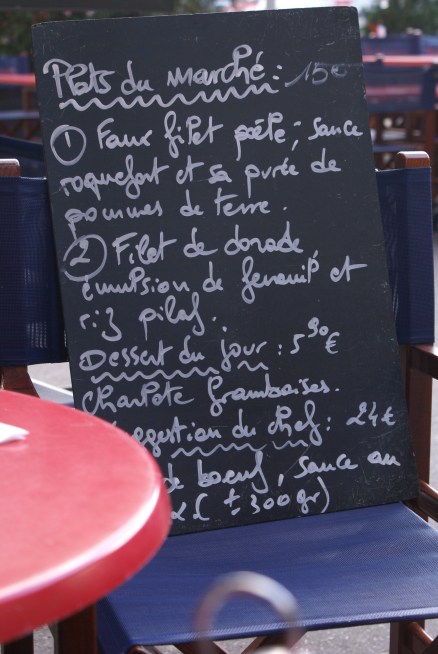 Plats du marché: 15€
1 Faux filet poêlé; sauce
roquefort et sa purée de
pommes de terre.
2 Filet de dorade,
émulsion de fenouil et
riz pilaf.
Dessert du jour: 5,90€
Charlote framboises.
ggestion du chef: 24€
de boeuf, sauce au
(± 300gr)